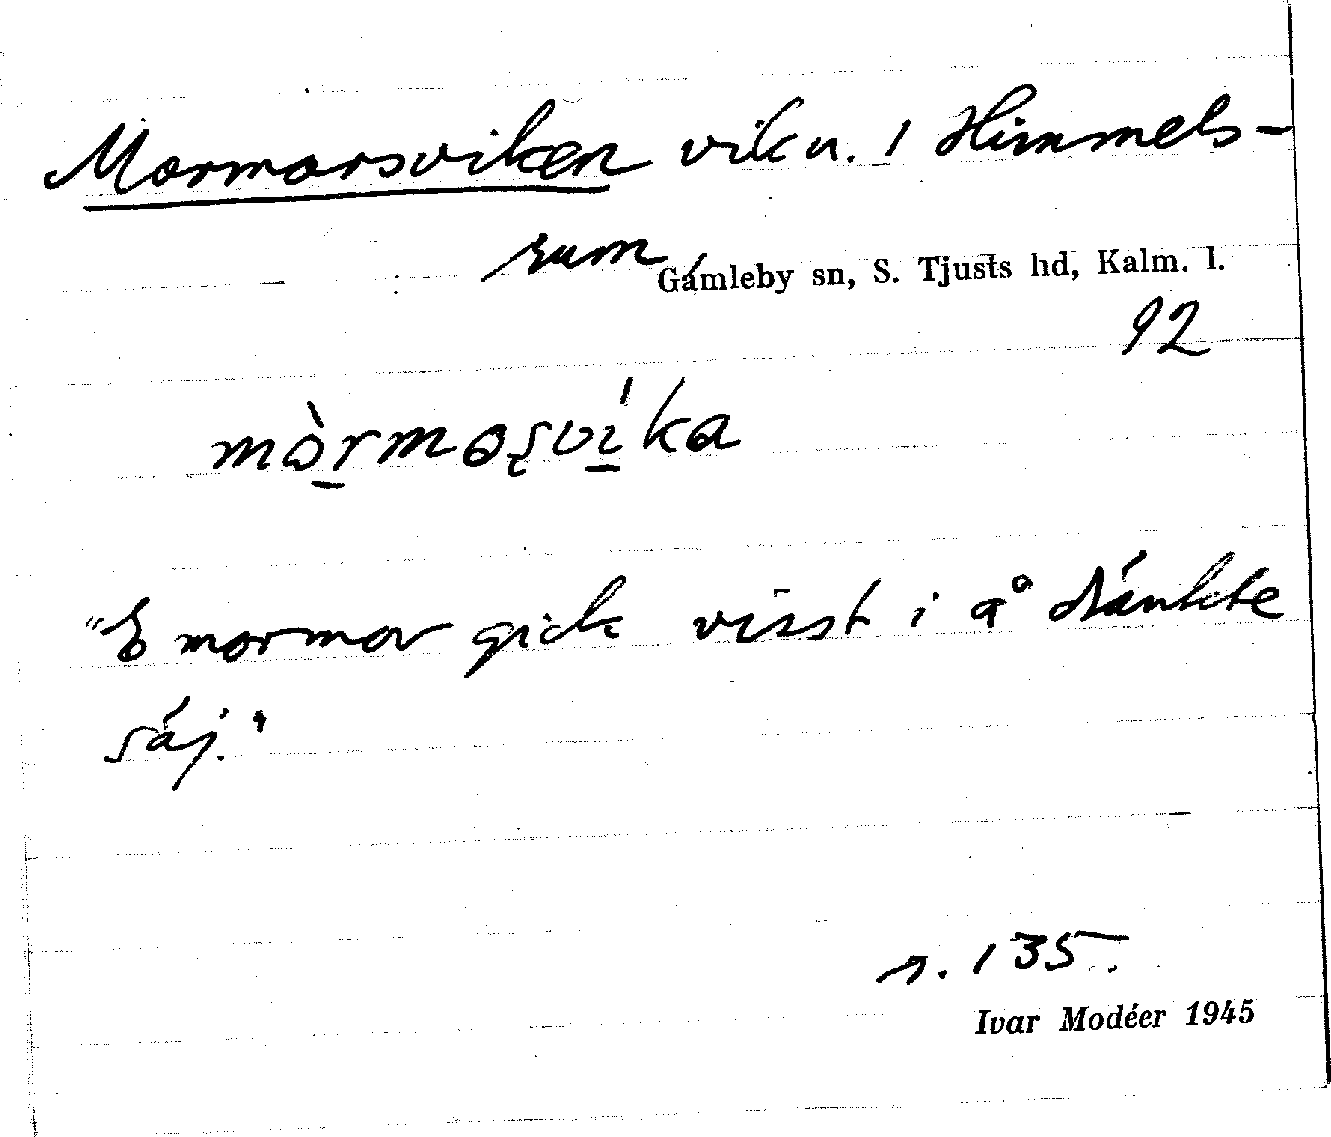 Mormorsviken vik n. 1 Himmels-
rum
Gamleby sn, S. Tjusts hd, Kalm. l.
92
mòrmoʂvíka
"E mormor gick visst i å dränkte
säj."
s. 135.
Ivar Modéer 1945